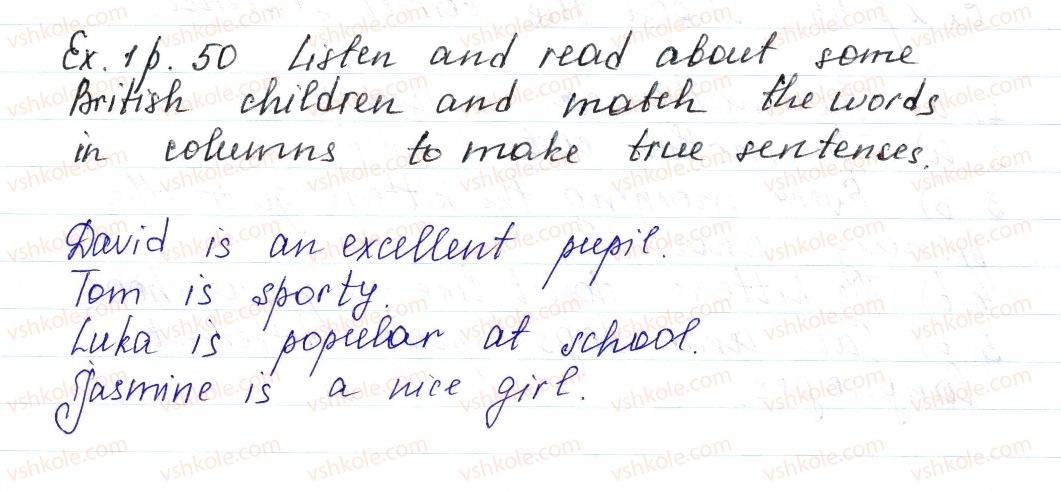 Ex. 1 p. 50 Listen and read about some
British children and match the words
in columns to make true sentenses.
David is an excellent pupil.
Tom is sporty.
Luka is popular at school.
Jasmine is a nice girl.